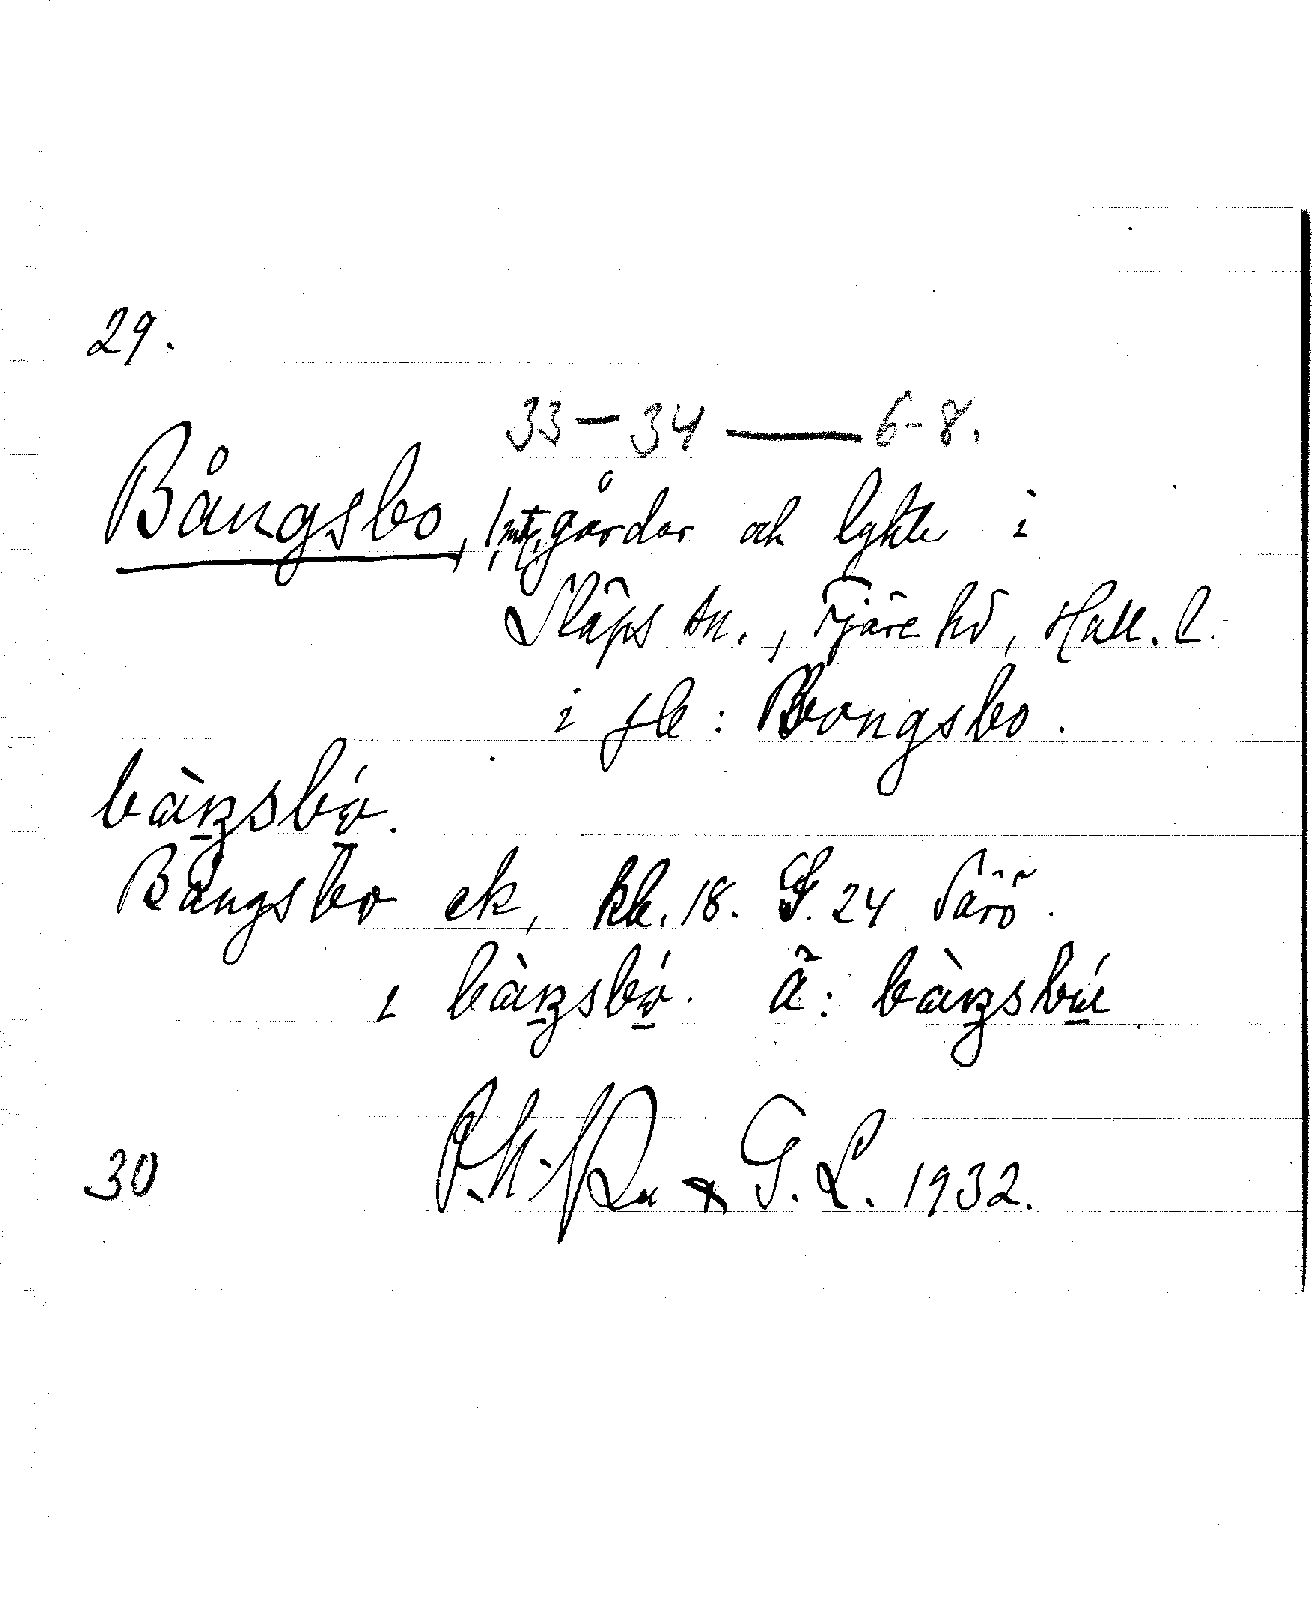 29.
33 — 34 — 6-8.
Bångsbo, 1 mtl, gårdar och lghter i
Släps sn., Fjäre hd, Hall. l.
i jb: Bongsbo.
bàŋsbó.
Bångsbo ek, kk. 18. G. 24 Särö.
i bàŋsbó. Ä: bàŋsbú
30 G. L. 1932.